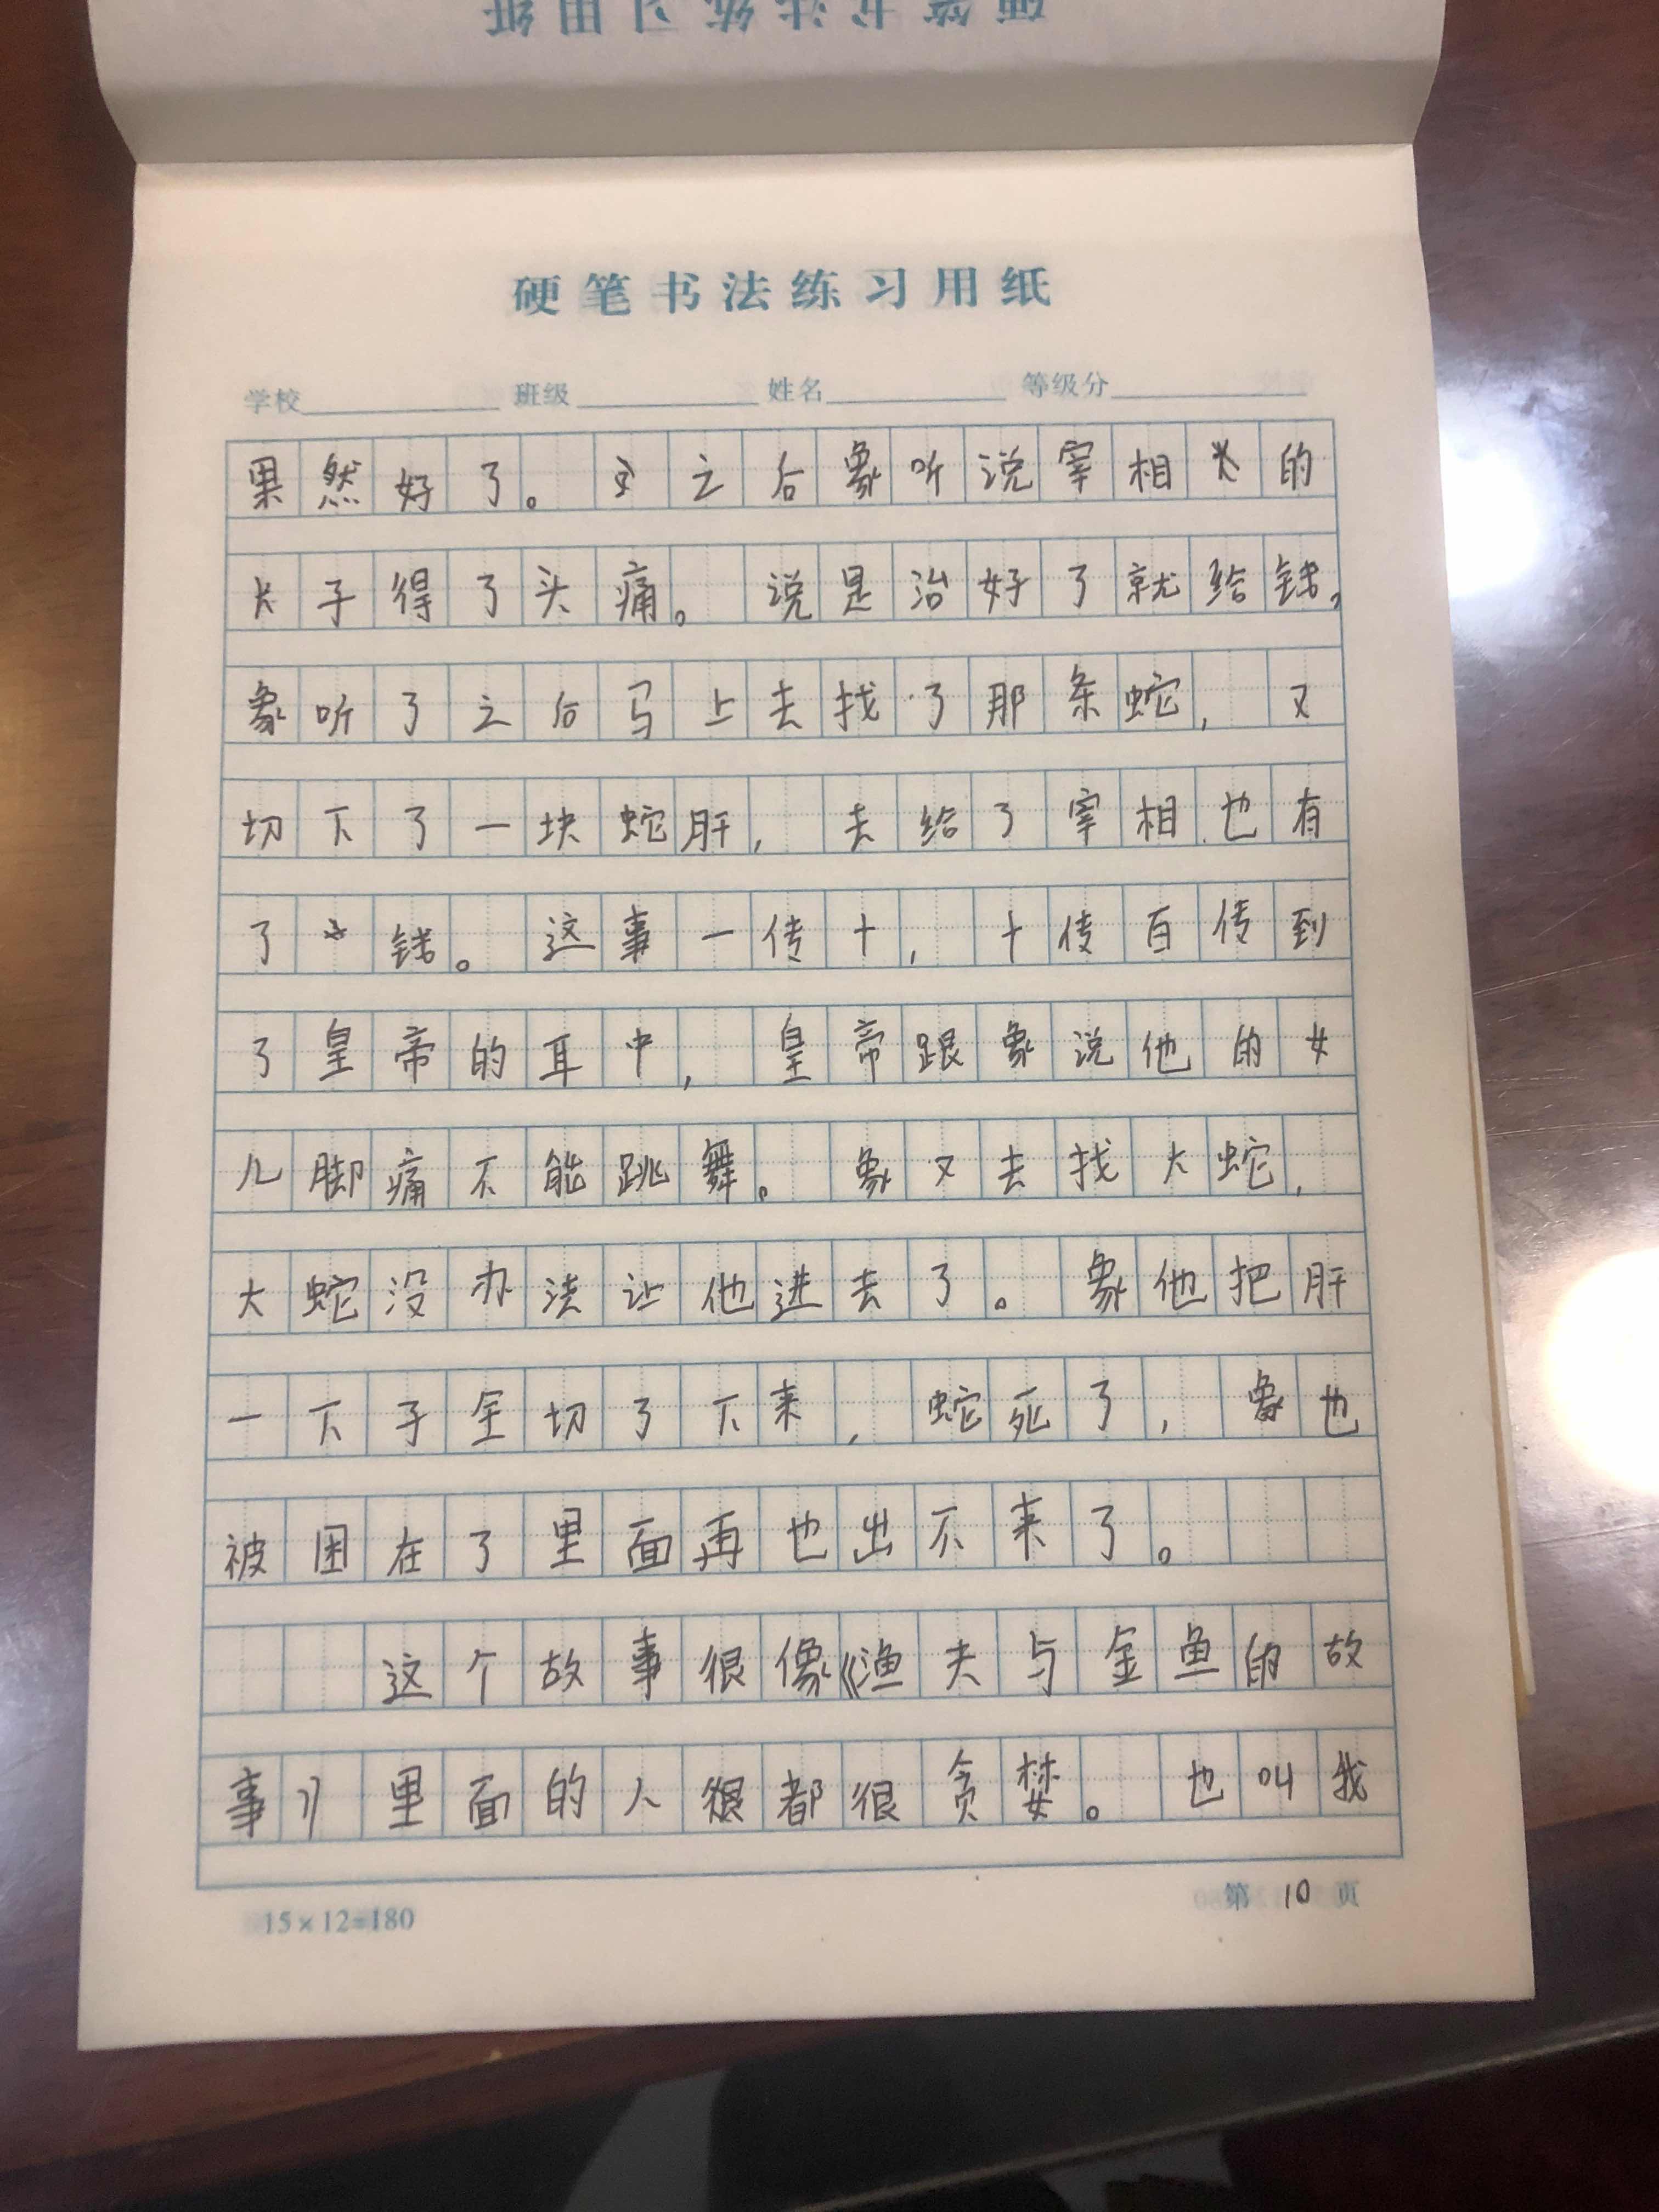 硬笔书法练习用纸
硬笔书法练习用纸
学校 班级 姓名 等级分
果然好了。之后象听说宰相的
大子得了头痛。说是治好了就给钱,
象听了之后马上去找了那条蛇,又
切下了一块蛇肝,去给了宰相也有
了钱。这事一传十,十传百传到
了皇帝的耳中,皇帝跟象说他的女
儿脚痛不能跳舞。象又去找大蛇,
大蛇没办法让他进去了。象他把肝
一下子全切了下来,蛇死了,象也
被困在了里面再也出不来了。
这个故事很像《渔夫与金鱼的故
事》里面的人都很贪婪。也叫我
15×12=180
第10页